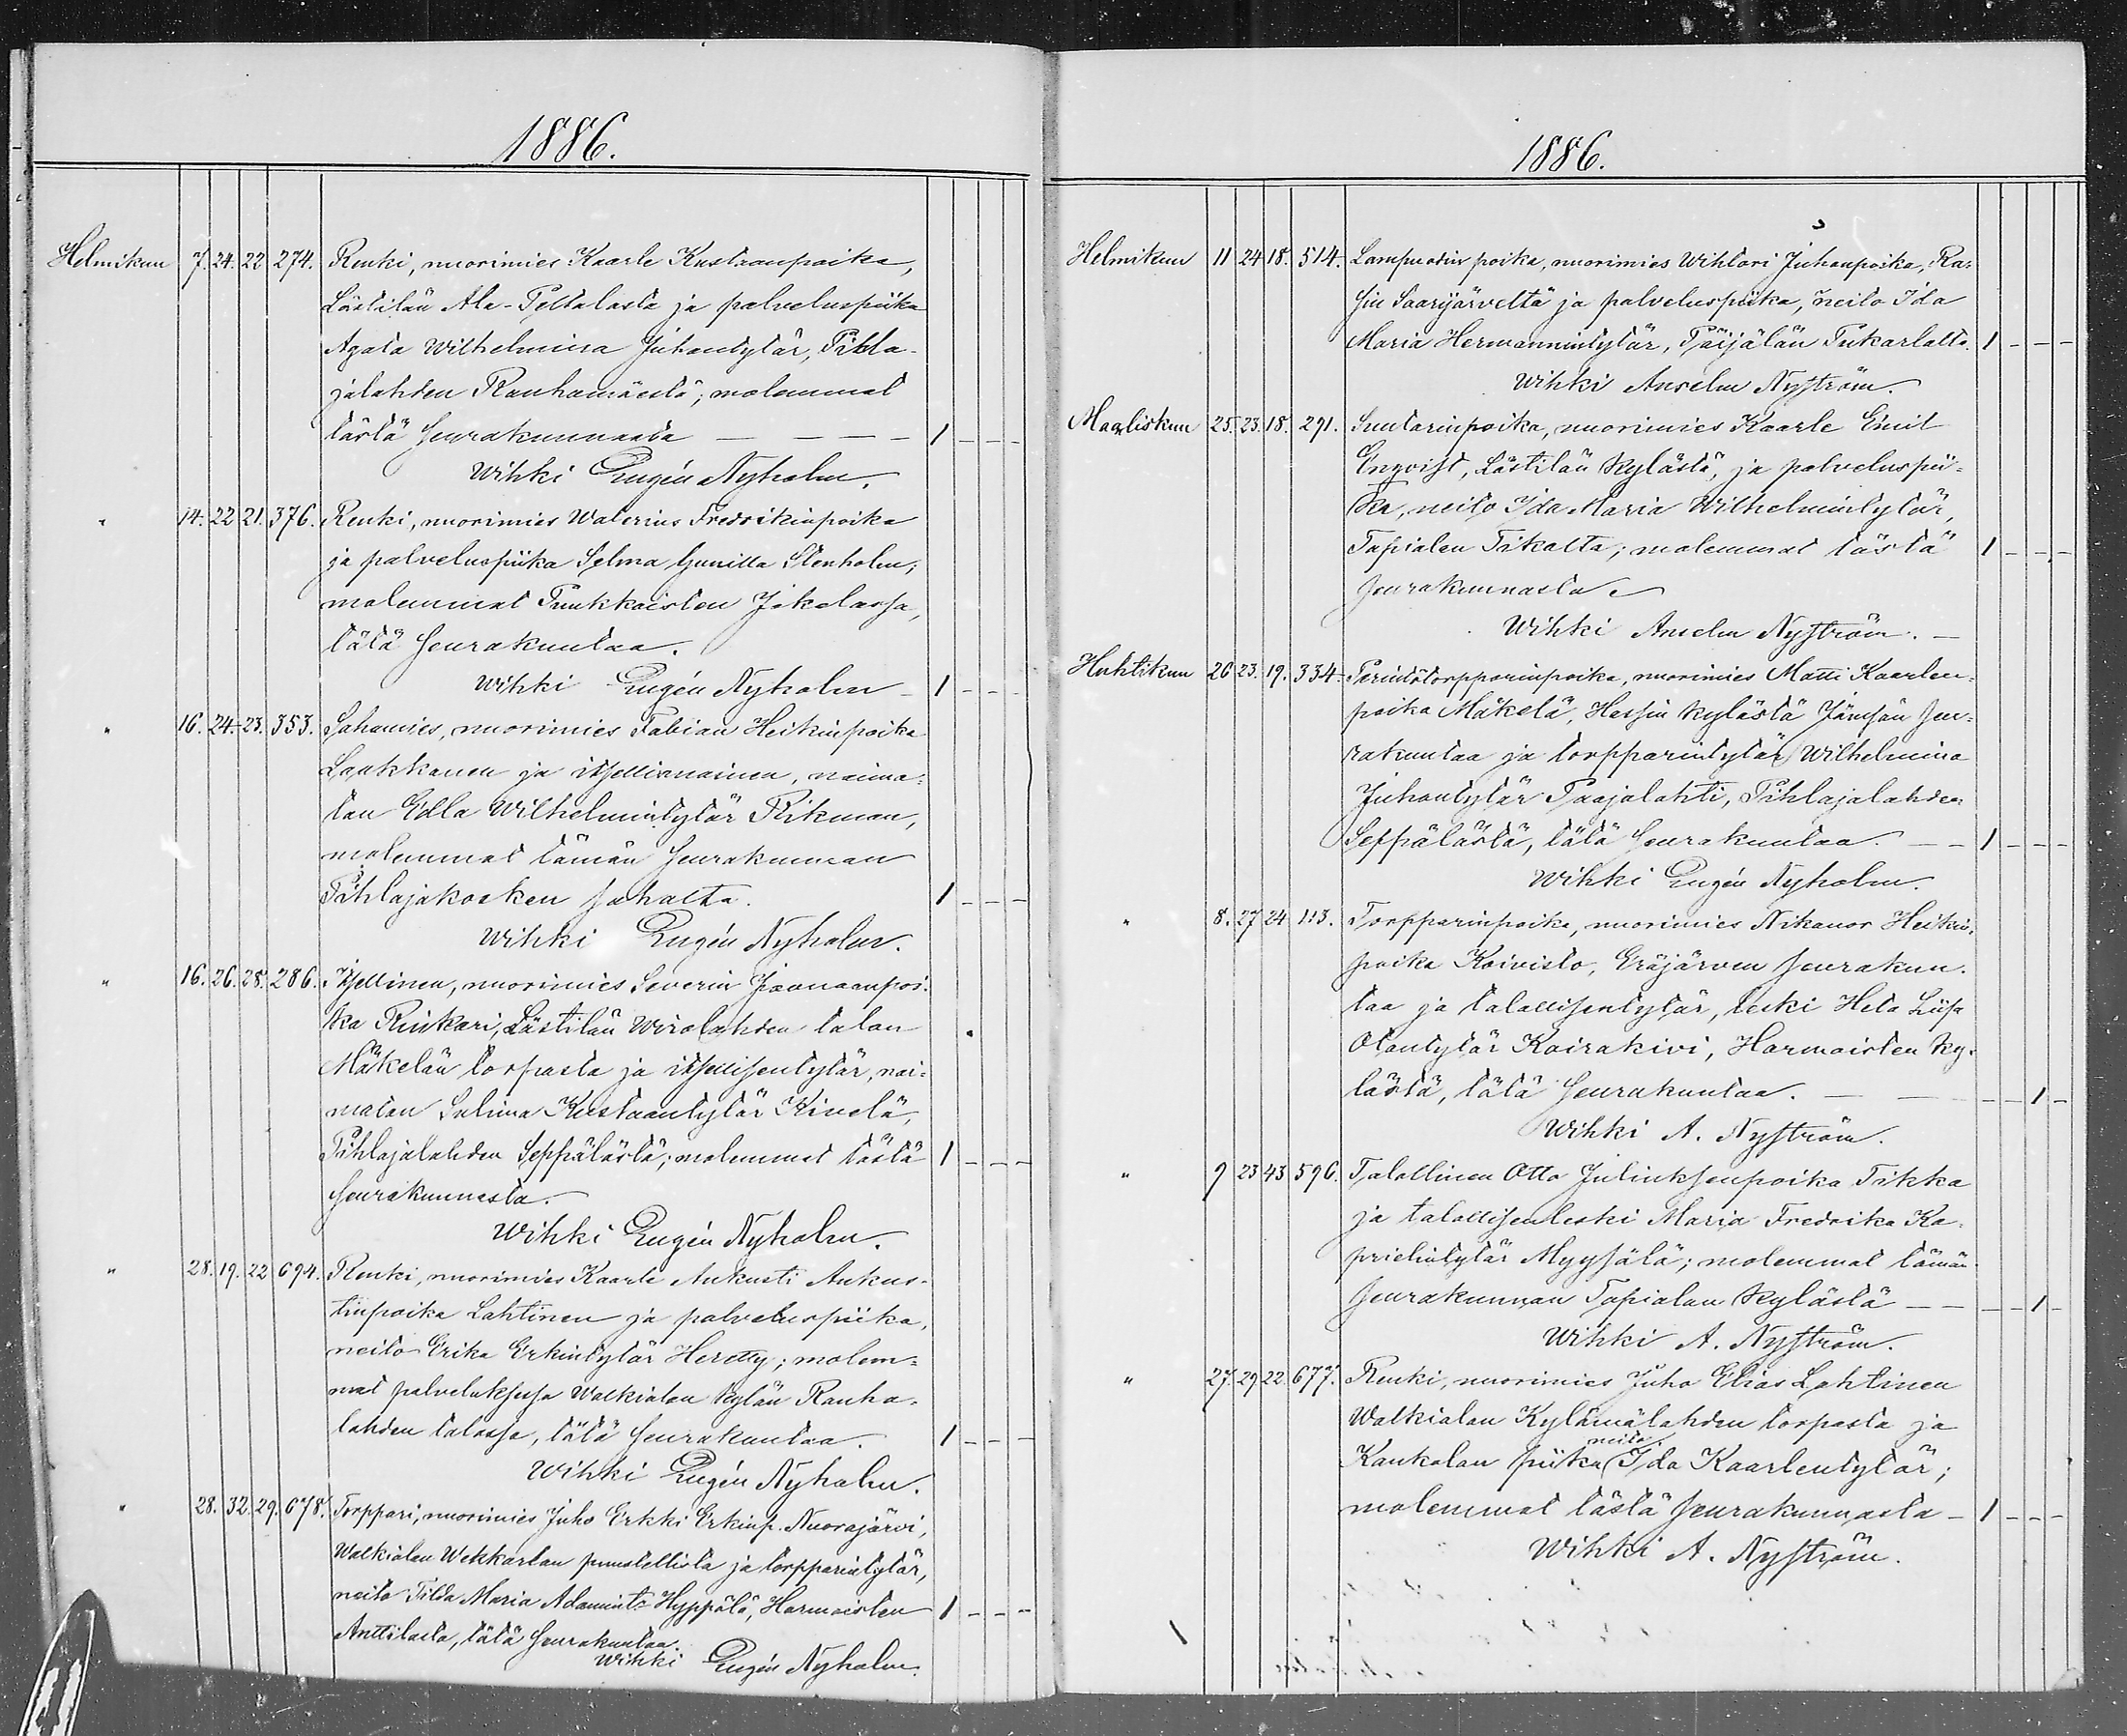 1886.
Helmikuu 7. 24. 22 274. Renki, nuorimies Kaarle Kustaanpoika,
Lästilän Ala-Peltolasta ja palveluspiika
Agata Wilhelmina Juhontytär, Pihla-
jalahden Rauhamäestä; molemmat
tästä seurakunnasta — — — — 1 - - -
Wihki Eugén Nyholm.
" 14. 22 21. 376. Renki, nuorimies Walerius Fredrikinpoika
ja palveluspiika Selma Gunilla Stenholm;
molemmat Puukkoisten Jokelassa,
tätä seurakuntaa.
Wihki Eugén Nyholm – 1 - - -
" 16. 24. 23. 353. Sahamies, nuorimies Fabian Heikinpoika
Laakkonen ja itsellisnainen, naima-
ton Edla Wilhelmintytär Rikman,
molemmat tämän seurakunnan
Pihlajakosken sahalta. 1 - - -
Wihki Eugén Nyholm.
" 16. 26. 28. 286. Itsellinen, nuorimies Severin Joonaanpoi-
ka Rinkari, Lästilän Wirolahden talon
Mäkelän torpasta ja itsellisentytär, nai-
maton Salima Kustaantytär Kivelä,
Pihlajalahden Seppälästä; molemmat tästä 1 - - -
seurakunnasta.
Wihki Eugén Nyholm.
" 28. 19. 22 694. Renki, nuorimies Kaarle Aukusti Aukus-
tinpoika Lahtinen ja palveluspiika,
neito Erika Erkintytär Heretty; molem-
mat palveluksessa Walkialan kylän Rauha-
lahden talossa, tätä seurakuntaa. 1 - - -
Wihki Eugén Nyholm.
" 28. 32. 29. 678. Torppari, nuorimies Juho Erkki Erkinp. Nuorajärvi,
Walkialan Wekkarlan puustellista ja torpparintytär,
neito Tilda Maria Adamint. Hyppölä, Harmoisten 1 - - -
Anttilasta, tätä seurakuntaa.
Wihki Eugén Nyholm.
1886.
Helmikuu 11 24 18. 514. Lampuodin poika, nuorimies Wihtori Juhonpoika, Ra-
sin Saarijärveltä ja palveluspiika, neito Ida
Maria Hermannintytär, Päijälän Pukarlalta. 1 - - -
Wihki Anselm Nyström.
Maaliskuu 25. 23. 18. 291. Suutarinpoika, nuorimies Kaarle Emil
Enqvist, Lästilän kylästä, ja palveluspii-
ka, neito Ida Maria Wilhelmintytär,
Tapialan Tikalta; molemmat tästä 1 - - -
seurakunnasta
Wihki Anselm Nyström. —
Huhtikuu 26 23. 19. 334. Perintötorpparinpoika, nuorimies Matti Kaarlen-
poika Mäkelä, Hassin kylästä Jämsän seu-
rakuntaa ja torpparintytär Wilhelmina
Juhontytär Paajalahti, Pihlajalahden
Seppälästä, tätä seurakuntaa. — — 1 - - -
Wihki Eugén Nyholm.
" 8. 27 24 113. Torpparinpoika, nuorimies Nikanor Heikin-
poika Koivisto, Eräjärven seurakun-
taa ja talollisentytär, leski Heta Liisa
Otontytär Kairakivi, Harmoisten ky-
lästä, tätä seurakuntaa. — — - - 1 -
Wihki A. Nyström.
" 9 23 43 596. Talollinen Otto Juliuksenpoika Tikka
ja talollisenleski Maria Fredrika Ka-
prielintytär Myysälä; molemmat tämän
seurakunnan Tapialan kylästä — — - - 1 -
Wihki A. Nyström.
" 27. 29 22. 677. Renki, nuorimies Juho Elias Lahtinen
Walkialan Kylämälahden torpasta ja
Kaukolan piika neito Ida Kaarlentytär;
molemmat tästä seurakunnasta – 1 - - -
Wihki A. Nyström.